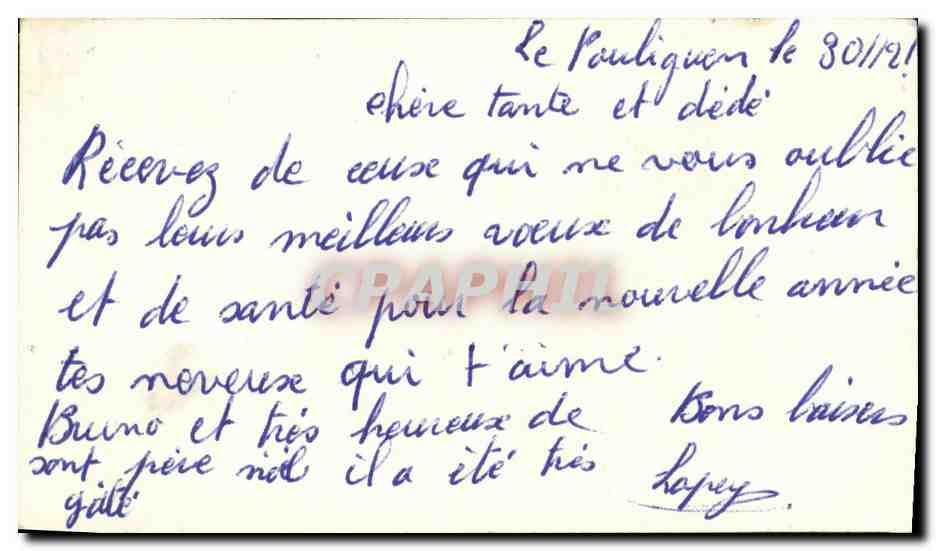 Le Pouliguen le 30/12
chère tante et dédé
Récevez de ceuse qui ne vous oublie
pas leurs meilleurs voeuse de bonheur
et de santé pour la nouvelle année
tes neveuse qui t'aime.
Bruno et très heureuse de
sont père nöel il a été très
gâté
Bons baisers
CPAPHIL